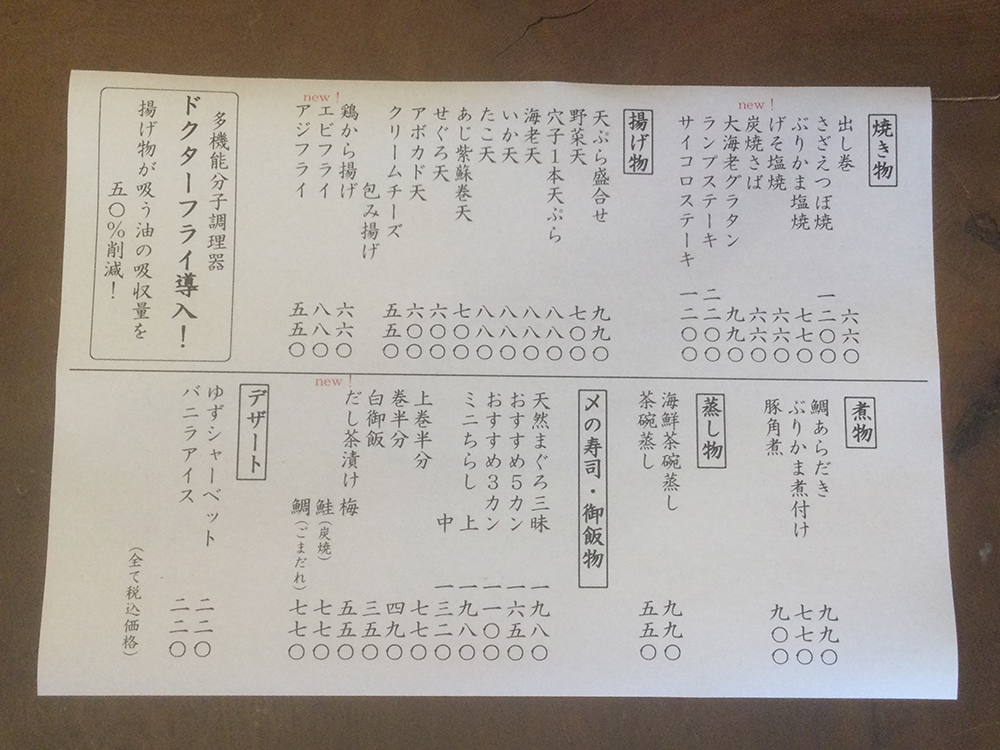 焼き物
出し巻 六六〇
さざえつぼ焼 一二〇〇
ぶりかま塩焼 七七〇
げそ塩焼 六六〇
new!
炭焼さば 六六〇
大海老グラタン 九九〇
ランプステーキ 二二〇〇
サイコロステーキ 一二〇〇
揚げ物
天ぷら盛合せ 九九〇
野菜天 七〇〇
穴子1本天ぷら 八八〇
海老天 八八〇
いか天 八八〇
たこ天 八八〇
あじ紫蘇巻天 七〇〇
せぐろ天 六〇〇
アボカド天 六〇〇
クリームチーズ 五五〇
包み揚げ
鶏から揚げ 六六〇
new!
エビフライ 八八〇
アジフライ 五五〇
多機能分子調理器
ドクターフライ導入!
揚げ物が吸う油の吸収量を
五〇%削減!
煮物
鯛あらだき 九九〇
ぶりかま煮付け 七七〇
豚角煮 九〇〇
蒸し物
海鮮茶碗蒸し 九九〇
茶碗蒸し 五五〇
〆の寿司・御飯物
天然まぐろ三昧 一九八〇
おすすめ5カン 一六五〇
おすすめ3カン 一一〇〇
ミニちらし 上 一九八〇
中 一三二〇
上巻半分 七七〇
巻半分 四九〇
白御飯 三五〇
new!
だし茶漬け 梅 五五〇
鮭(炭焼) 七七〇
鯛(ごまだれ) 七七〇
デザート
ゆずシャーベット 二二〇
バニラアイス 二二〇
(全て税込価格)